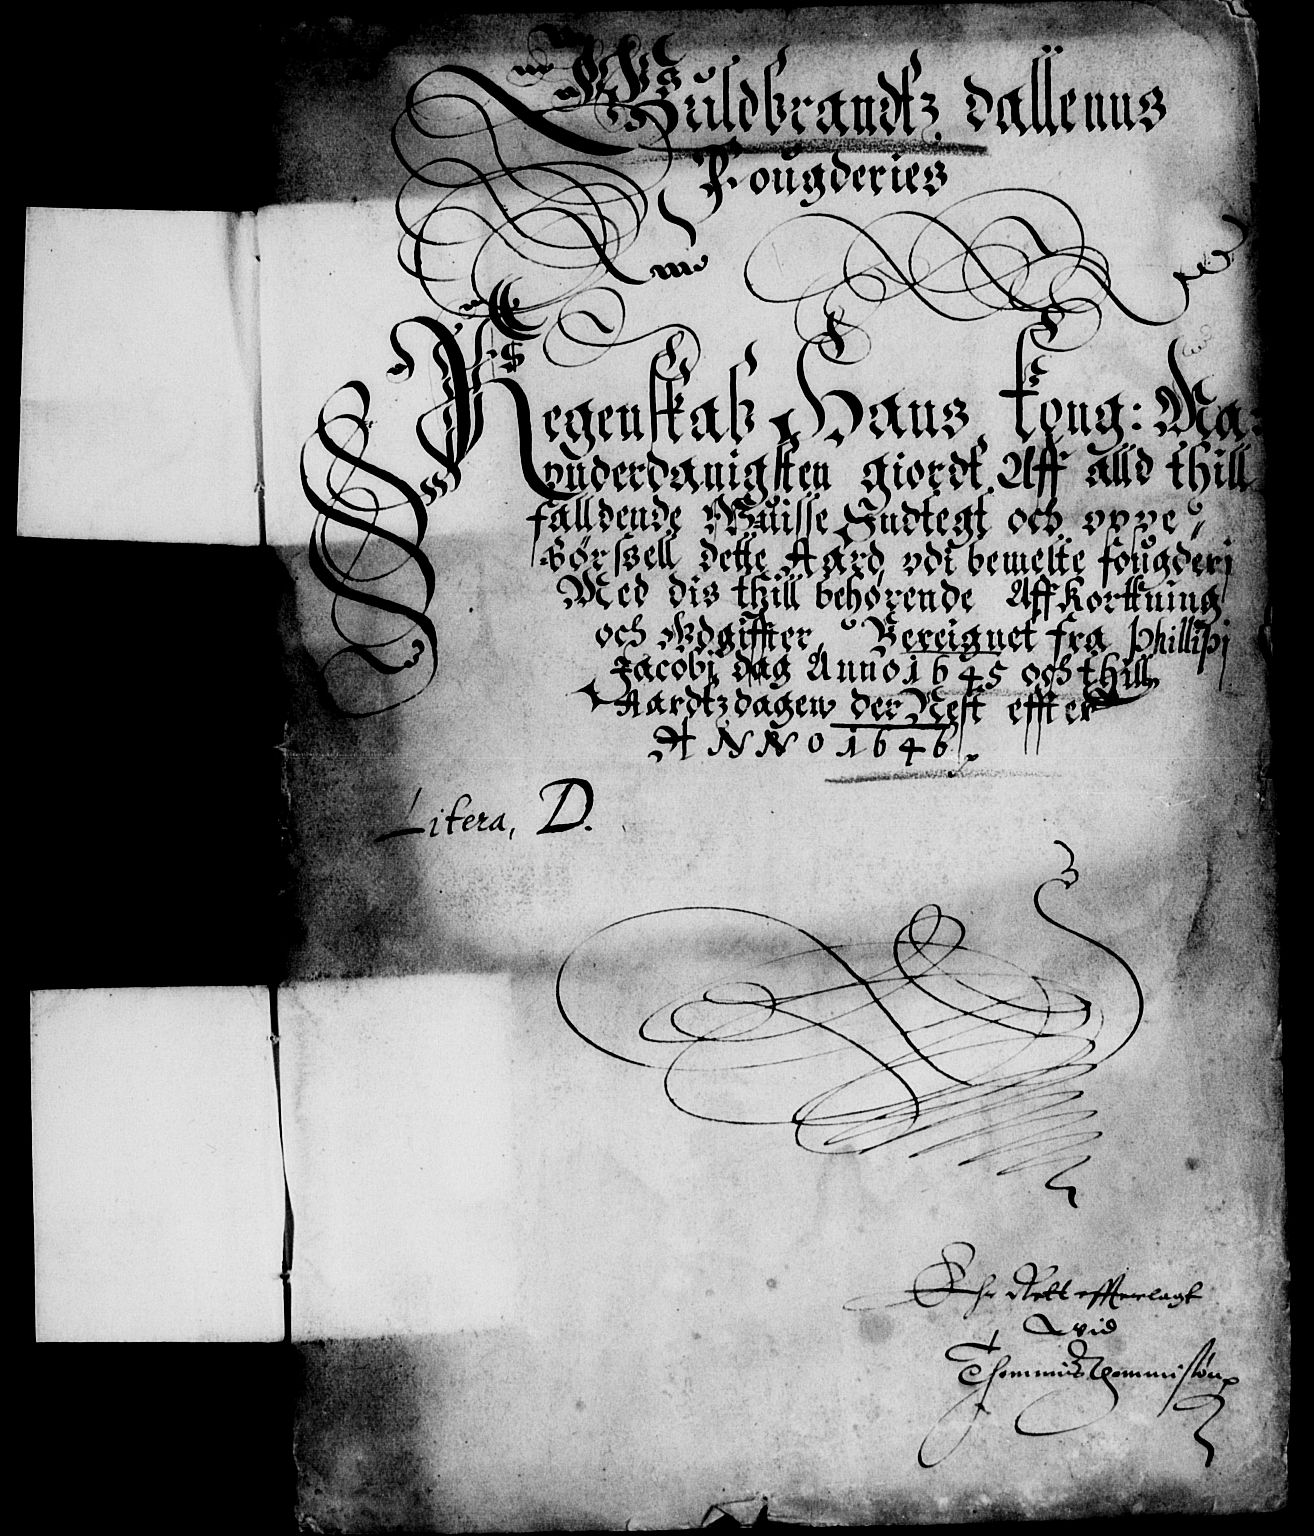 Guldbrandtz dallenns
Fougderies
Regenskab Hans Kong: Ma:
vnderdanigsten giordt Aff alld thill
falldende Wuisse Indtegt och oppe
Børssell dette Aard vdi bemelte fougderj
Med dis thill behørende Affkorttning
och Vdgiffter, Bereignet fra Phillipi
Jacobj dag Anno 1645 och thill
Aardtzdagen der Nest effter
ANNO 1646
Litera, D.
Ehr Rett effterlagt
vid
Thommis Thommisøn